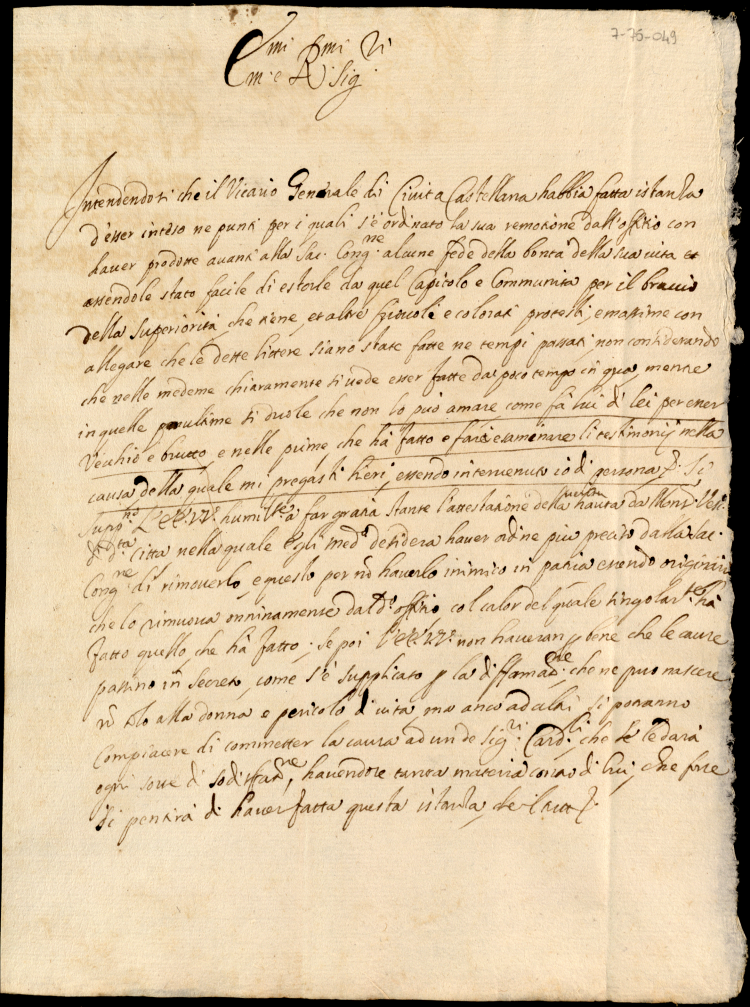 7-76-049
Em.mi e R.mi Sig.ri
Intendendosi che il Vicario Generale di Civita Castellana habbia fatta istanza
d'esser inteso ne punti per i quali s'è ordinato la sua remotione dall'offitio con
haver prodotte avanti alla Sac. Cong.ne alcune fede della bontà della sua vita et
essendole stato facile di estorle da quel Capitolo e Communita per il braccio
della superiorità, che tiene, et altri frivoli e colorati protesti, e massime con
allegare che le dette littere siano state fatte ne tempi passati, non considerando
che nelle medeme chiaramente si vede esser fatte da poco tempo in qua, mentre
in quelle penultime si duole che non lo può amare come fà lui di lei per esser
Vecchio e brutto, e nelle prime che hà fatto e farà esaminare li testimonij nella
causa della quale mi pregasti hieri, essendo intervenuto io di persona p. Si
supp.no L'EE. VV. humilm.te a far gratia stante l'attestatione della havuta da Mons. Vesc.
di d.ta Citta nella quale egli med.o desidera haver ordine più preciso dalla Sac.
Cong.ne di rimoverlo, e questo per nō haverlo inimico in patria essendo
che lo rimuova onninamente dal d.o offitio col calor del quale singolar.te hà
fatto quello, che hà fatto; se poi l'EE. VV. non haveran p bene che le cause
passino in secreto, come s'è supplicato p la diffamat.ne, che ne può nascere
nō solo alla donna e pericolo di vita, ma anco ad altri si potranno
compiacere di commetter la causa ad un de Sig.ri Card.li, che se le darà
ogni sorte di sodisfat.ne, havendose tanta materia contro di lui, che forse
si pentirà di haver fatta questa istanza, che il tutto p.